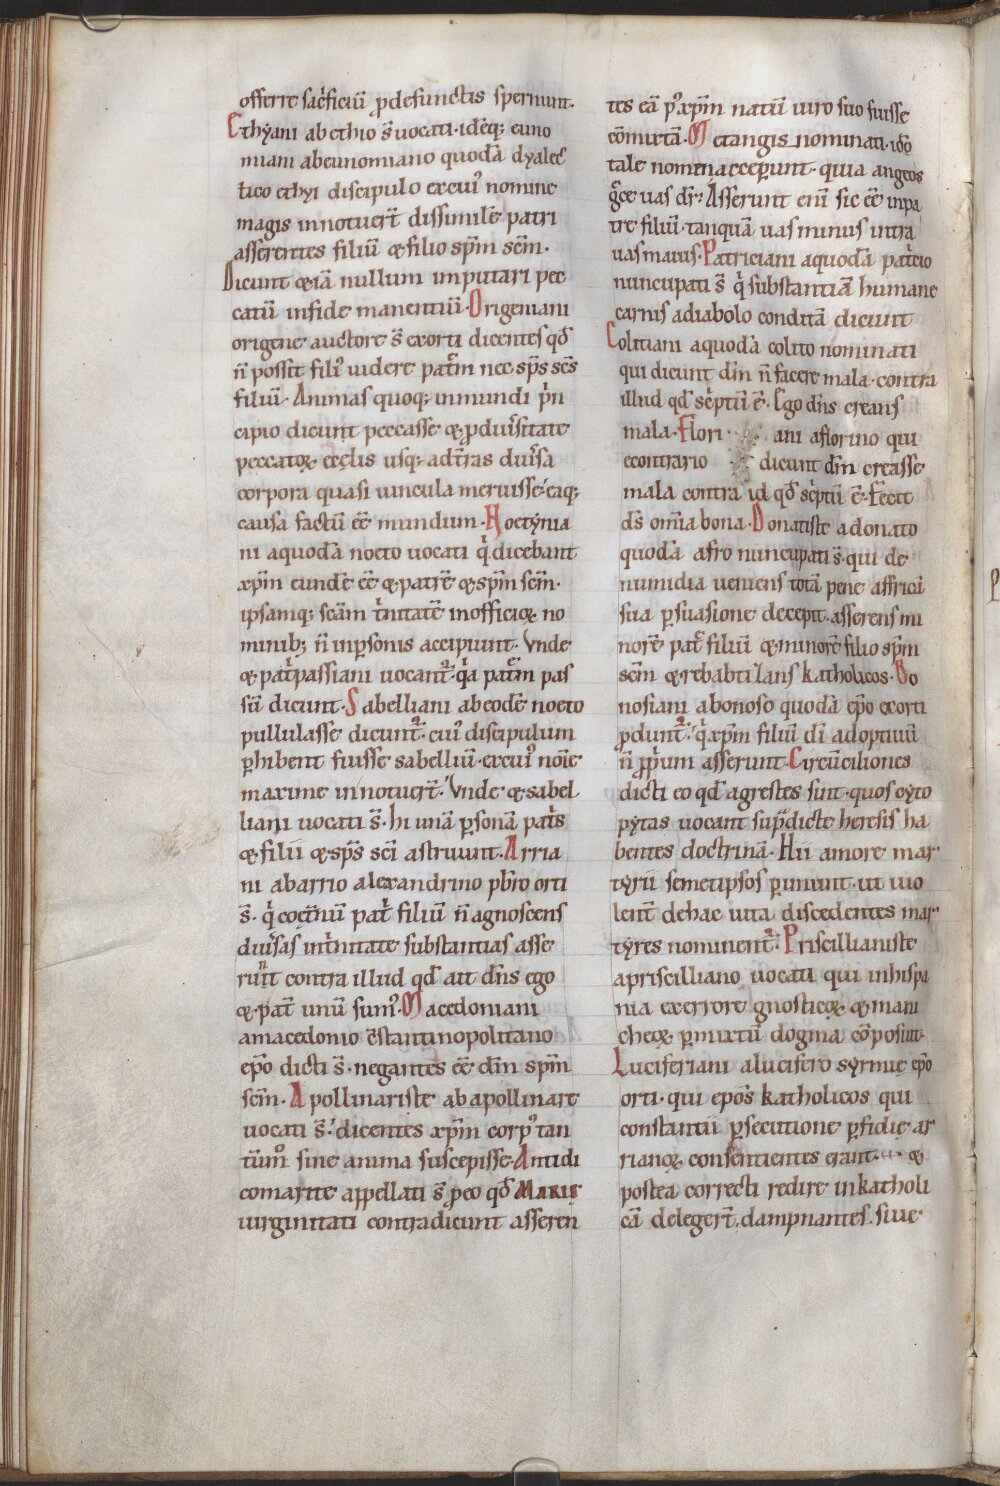 offerre sac̉ficiū ꝓdefunctis spernunt.
Ethyani ab ethio s̄ uocati· idēq; euno
miani abeunomiano quodā dyalec̄
tico ethyi discipulo excuiꝰ nomine
magis innotuer̄t dissimilē patri
asserentes filiū ⁊ filio sp̄m sc̄m.
Dicunt ⁊iā nullum imputari pec
catū infide manentiū· Origeniani
origene auctore s̄ exorti dicentes qđ
n̄ possit filiꝰ uidere patr̄m nec sp̄s sc̄s
filiū· Animas quoq; inmundi p̉n
cipio dicunt peccasse ⁊ ꝓ diuͥsitate
peccatoꝝ ecęlis usq; adt̄ras diuͥsa
corpora quasi uincula meruisse· eaq;
causa factū ee̅ mundum· Noetynia
ni aquodā noeto uocati q̉ dicebant
xp̄m eundē ee̅ ⁊ patrē ⁊ sp̄m sc̄m·
ipsamq; sc̄am t̉nitatē inofficioꝝ no
minib; n̄ inꝑsonis accipiunt· Vnde
⁊ pat̉passiani uocant̉· q̉a patr̄m pas
sū dicunt· Sabelliani abeodē noeto
pullulasse dicunt̉· cuiꝰ discipulum
ꝑhibent fuisse sabelliū· excuiꝰ noīe
maxime innotuer̄t· Vnde ⁊ sabel
liani uocati s̄· hi unā ꝑsonā pat̉s
⁊ filii ⁊ sp̄s sc̄i astruunt· Arria
ni abarrio alexandrino pb̄ro orti
s̄· q̉ coęt̄nū pat̉ filiū n̄ agnoscens
diuͥsas int̉nitate substantias asse
runt contra illud qđ ait dn̄s ego
⁊ pat̄ unū sumꝰ· Macedoniani
amacedonio c̄stantinopolitano
ep̄o dicti s̄· negantes ee̅ dm̄ sp̄m
sc̄m· Apollinariste ab apollinare
uocati s̄· dicentes xp̄m corpꝰ tan
tūmͦ sine anima suscepisse· Antidi
comarite appellati s̄ ꝑeo qđ MARIE
uirginitati contradicunt asseren
tes eā pꝰ xp̄m natū uiro suo fuisse
cōmixtā· Metangis_nominati· idc̊
tale nomen acceperunt· quia angeos
gc̄e uas dr̄· Asserunt enī sic ee̅ inpa
tre filiū· tanquā uas minus intra
uas maius· Patriciani aquodā pat̉cio
nuncupati s̄ q̉ substantiā humanę
carnis adiabolo conditā dicunt
Colitiani aquodā colito nominati
qui dicunt dm̄ n̄ facere mala· contra
illud qđ sc̉ptū ē· Ego dn̄s creans
mala· Flori ani aflorino qui
econtrario dicunt dm̄ creasse
mala contra id qđ sc̉ptū ē· Fecit
ds̄ om̄ia bona· Donatiste adonato
quodā afro nuncupati s̄· qui de
numidia ueniens totā pene affricā
sua ꝑsuasione decepit· asserens mi
norē pat̄ filiū ⁊ minorē filio sp̄m
sc̄m ⁊ rebabtiᶻans katholicos· Bo
nosiani abonoso quodā ep̄o exorti
ꝓdunt̉· q̉ xp̄m filiū di̅ adoptiuū
n̄ ꝓp̉um asserunt· Circūciliones
dicti eo qđ agrestes sint· quos cyto
pytas uocant sup̄dicte heresis ha
bentes doctrinā· Hii amore mar
tyrii semetipsos perimunt· ut uio
lent̄ dehac uita discedentes mar
tyres nominent̉· Priscillianiste
apriscilliano uocati qui inhispa
nia exerrore gnosticoꝝ ⁊ mani
cheoꝝ ꝑmixtū dogma cōposuit·
Luciferiani alucifero syrmię ep̄o
orti· qui epo̅s katholicos qui
constantii ꝑsecutione ꝑfidię ar
rianoꝝ consentientes erant· ⁊
postea correcti redire inkatholi
cā deleger̄t· dampnantes· siue·